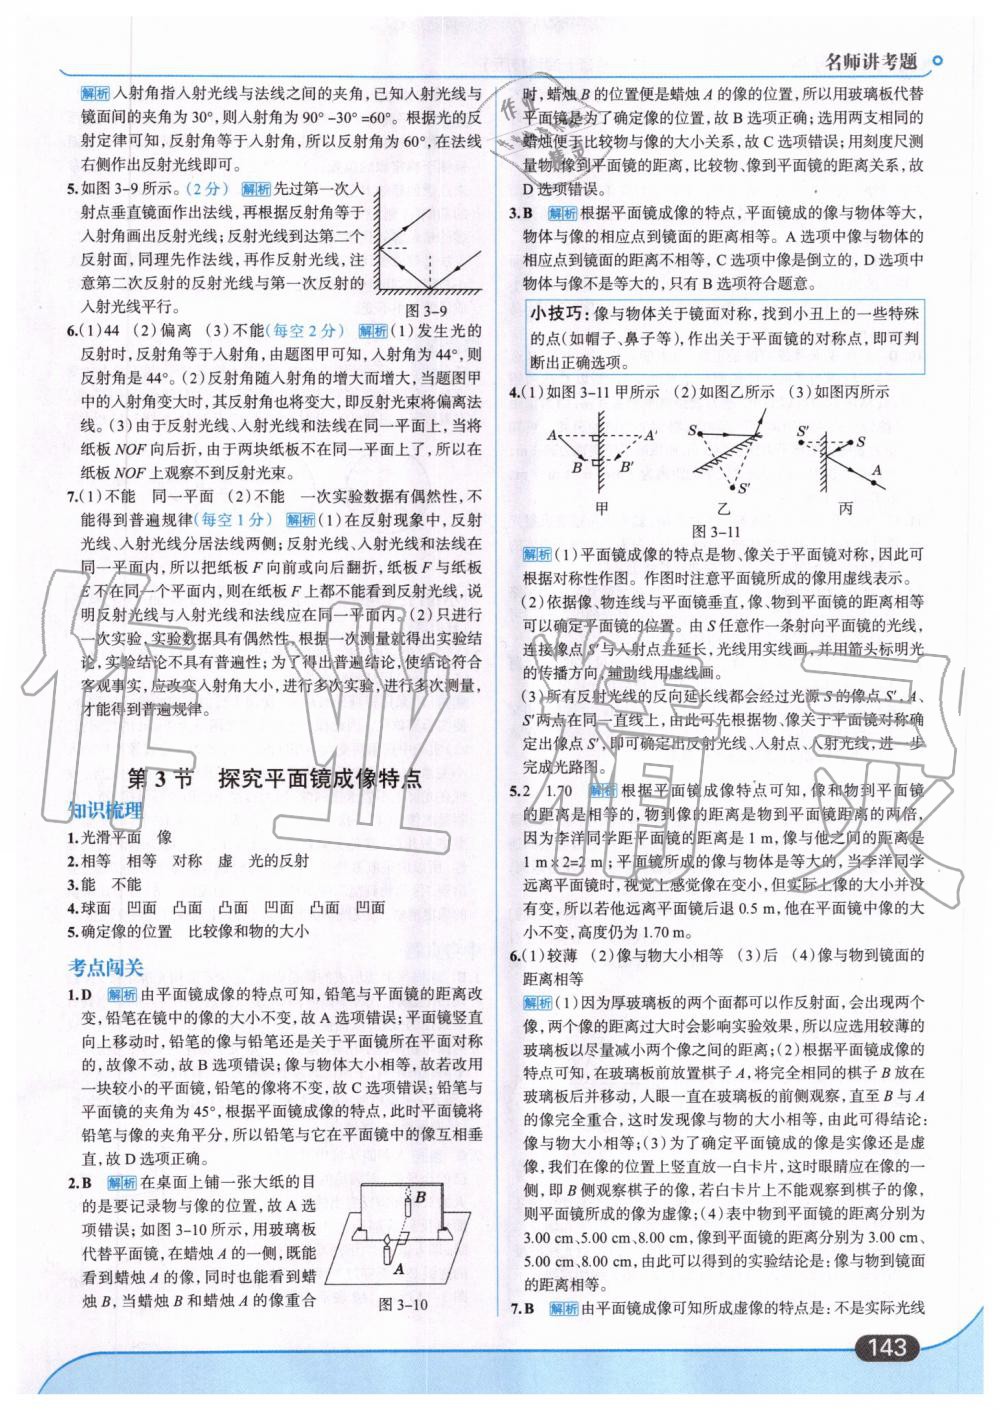 名师讲考题
解析 入射角指入射光线与法线之间的夹角,已知入射光线与
镜面间的夹角为 30°,则入射角为 90° -30° =60°。根据光的反
射定律可知,反射角等于入射角,所以反射角为 60°,在法线
右侧作出反射光线即可。
5.如图 3-9 所示。(2 分) 解析 先过第一次入
射点垂直镜面作出法线,再根据反射角等于
入射角画出反射光线;反射光线到达第二个
反射面,同理先作法线,再作反射光线,注
意第二次反射的反射光线与第一次反射的
入射光线平行。
图 3-9
6.(1)44 (2)偏离 (3)不能(每空 2 分) 解析 (1)发生光的
反射时,反射角等于入射角,由题图甲可知,入射角为 44°,则
反射角是 44°。(2)反射角随入射角的增大而增大,当题图甲
中的入射角变大时,其反射角也将变大,即反射光束将偏离法
线。(3)由于反射光线、入射光线和法线在同一平面上,当将
纸板 NOF 向后折,由于两块纸板不在同一平面上了,所以在
纸板 NOF 上观察不到反射光束。
7.(1)不能 同一平面 (2)不能 一次实验数据有偶然性,不
能得到普遍规律(每空 1 分) 解析 (1)在反射现象中,反射
光线、入射光线分居法线两侧;反射光线、入射光线和法线在
同一平面内,所以把纸板 F 向前或向后翻折,纸板 F 与纸板
E 不在同一个平面内,则在纸板 F 上都不能看到反射光线,说
明反射光线与入射光线和法线应在同一平面内。(2)只进行
一次实验,实验数据具有偶然性,根据一次测量就得出实验结
论,实验结论不具有普遍性;为了得出普遍结论,使结论符合
客观事实,应改变入射角大小,进行多次实验,进行多次测量,
才能得到普遍规律。
第 3 节 探究平面镜成像特点
知识梳理
1.光滑平面 像
2.相等 相等 对称 虚 光的反射
3.能 不能
4.球面 凹面 凸面 凸面 凹面 凸面 凹面
5.确定像的位置 比较像和物的大小
考点闯关
1.D 解析 由平面镜成像的特点可知,铅笔与平面镜的距离改
变,铅笔在镜中的像的大小不变,故 A 选项错误;平面镜竖直
向上移动时,铅笔的像与铅笔还是关于平面镜所在平面对称
的,故像不动,故 B 选项错误;像与物体大小相等,故若改用
一块较小的平面镜,铅笔的像将不变,故 C 选项错误;铅笔与
平面镜的夹角为 45°,根据平面镜成像的特点,此时平面镜将
铅笔与像的夹角平分,所以铅笔与它在平面镜中的像互相垂
直,故 D 选项正确。
2.B 解析 在桌面上铺一张大纸的目
的是要记录物与像的位置,故 A 选
项错误;如图 3-10 所示,用玻璃板
代替平面镜,在蜡烛 A 的一侧,既能
看到蜡烛 A 的像,同时也能看到蜡
烛 B,当蜡烛 B 和蜡烛 A 的像重合
B
A
图 3-10
时,蜡烛 B 的位置便是蜡烛 A 的像的位置,所以用玻璃板代替
平面镜是为了确定像的位置,故 B 选项正确;选用两支相同的
蜡烛便于比较物与像的大小关系,故 C 选项错误;用刻度尺测
量物、像到平面镜的距离,比较物、像到平面镜的距离关系,故
D 选项错误。
3.B 解析 根据平面镜成像的特点,平面镜成的像与物体等大,
物体与像的相应点到镜面的距离相等。A 选项中像与物体的
相应点到镜面的距离不相等,C 选项中像是倒立的,D 选项中
物体与像不是等大的,只有 B 选项符合题意。
小技巧:像与物体关于镜面对称,找到小丑上的一些特殊
的点(如帽子、鼻子等),作出关于平面镜的对称点,即可判
断出正确选项。
4.(1)如图 3-11 甲所示 (2)如图乙所示 (3)如图丙所示
A A′ S S′ S
B B′ A
S′
甲 乙 丙
图 3-11
解析 (1)平面镜成像的特点是物、像关于平面镜对称,因此可
根据对称性作图。作图时注意平面镜所成的像用虚线表示。
(2)依据像、物连线与平面镜垂直,像、物到平面镜的距离相等
可以确定平面镜的位置。由 S 任意作一条射向平面镜的光线,
连接像点 S′与入射点并延长,光线用实线画,并用箭头标明光
的传播方向,辅助线用虚线画。
(3)所有反射光线的反向延长线都会经过光源 S 的像点 S′,A、
S′两点在同一直线上,由此可先根据物、像关于平面镜对称确
定出像点 S′,即可确定出反射光线、入射点、入射光线,进一步
完成光路图。
5.2 1.70 解析 根据平面镜成像特点可知,像和物到平面镜
的距离是相等的,物到像的距离是物到平面镜距离的两倍,
因为李洋同学距平面镜的距离是 1 m,像与他之间的距离是
1 m×2=2 m;平面镜所成的像与物体是等大的,当李洋同学
远离平面镜时,视觉上感觉像在变小,但实际上像的大小并没
有变,所以若他远离平面镜后退 0.5 m,他在平面镜中像的大
小不变,高度仍为 1.70 m。
6.(1)较薄 (2)像与物大小相等 (3)后 (4)像与物到镜面的
距离相等
解析 (1)因为厚玻璃板的两个面都可以作反射面,会出现两个
像,两个像的距离过大时会影响实验效果,所以应选用较薄的
玻璃板以尽量减小两个像之间的距离;(2)根据平面镜成像的
特点可知,在玻璃板前放置棋子 A,将完全相同的棋子 B 放在
玻璃板后并移动,人眼一直在玻璃板的前侧观察,直至 B 与 A
的像完全重合,这时发现像与物的大小相等,由此可得结论:
像与物大小相等;(3)为了确定平面镜成的像是实像还是虚
像,我们在像的位置上竖直放一白卡片,这时眼睛应在像的一
侧,即 B 侧观察棋子的像,若白卡片上不能观察到棋子的像,
则平面镜所成的像为虚像;(4)表中物到平面镜的距离分别为
3.00 cm、5.00 cm、8.00 cm,像到平面镜的距离分别为 3.00 cm、
5.00 cm、8.00 cm,由此可以得到的实验结论是:像与物到镜面
的距离相等。
7.B 解析 由平面镜成像可知所成虚像的特点是:不是实际光线
143
作业精灵